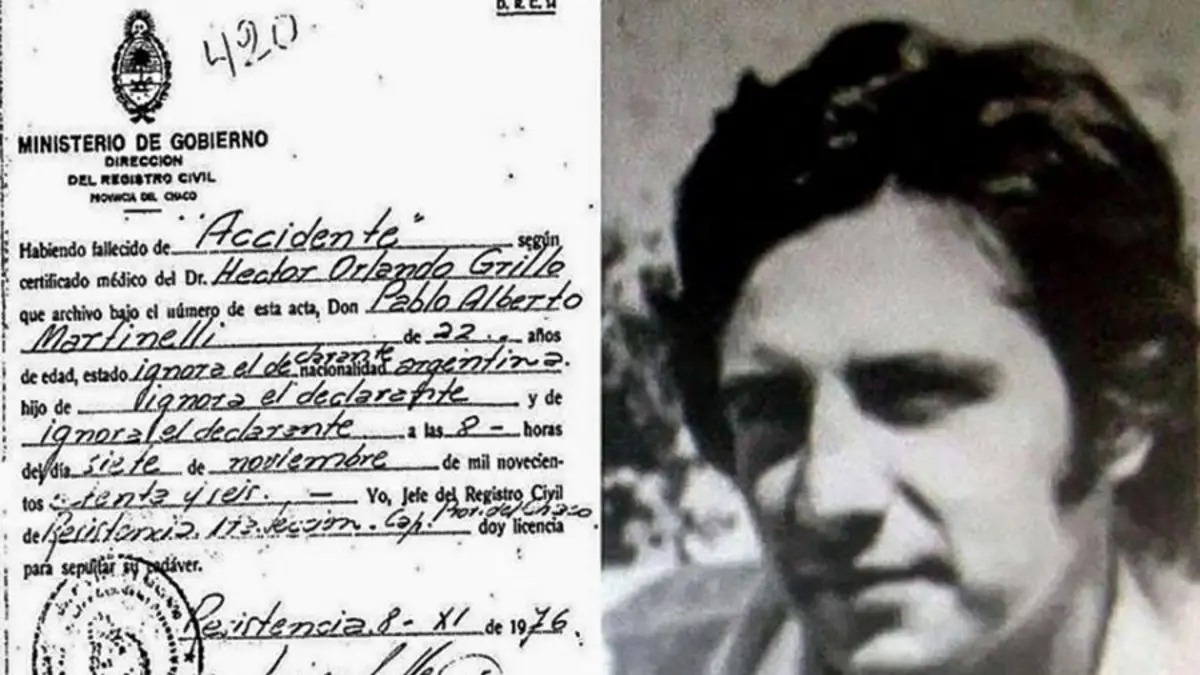 D. R. C. H
420
MINISTERIO DE GOBIERNO
DIRECCION
DEL REGISTRO CIVIL
PROVINCIA DEL CHACO
Habiendo fallecido de "Accidente" según
certificado médico del Dr. Hector Orlando Grillo
que archivo bajo el número de esta acta, Don Pablo Alberto
Martinelli de 22 .. años
de edad, estado ignora el declarante nacionalidad argentina.
hijo de ignora el declarante y de
ignora el declarante a las 8 - horas
del día siete de noviembre de mil novecien-
tos setenta y seis. — Yo, Jefe del Registro Civil
de Resistencia, Cap. Prov. del Chaco doy licencia
para sepultar su cadáver.
Resistencia, 8 - XI de 1976.